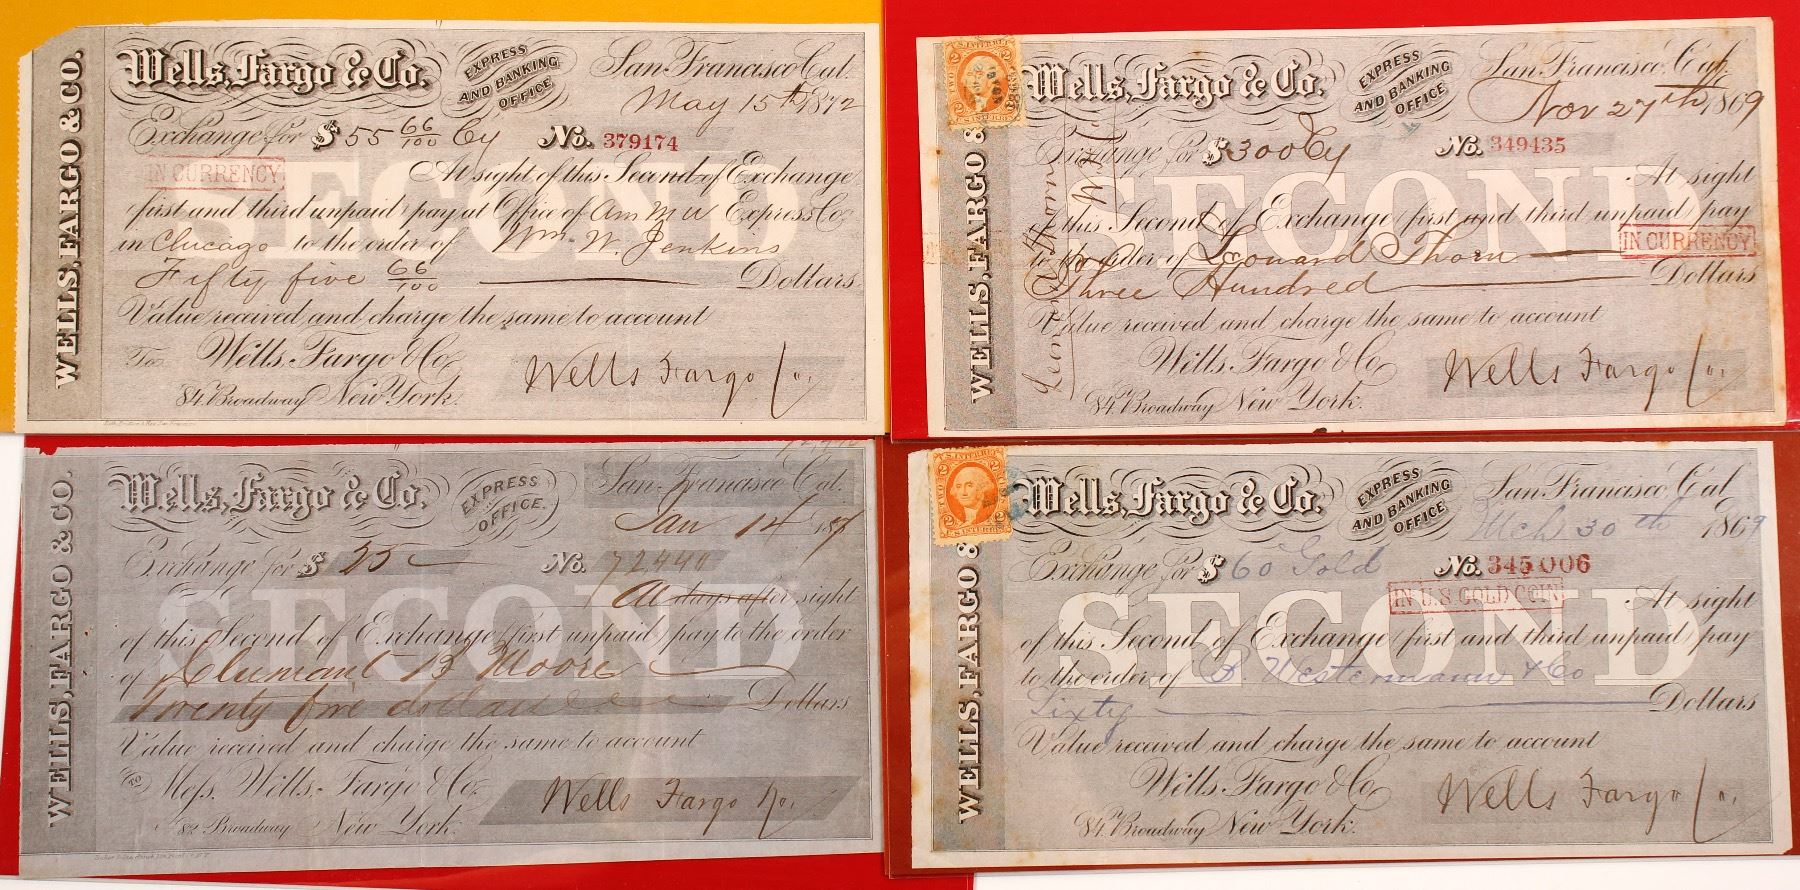 WELLS, FARGO & CO.
Wells, Fargo & Co.
EXPRESS
AND BANKING
OFFICE
San Francisco Cal.
May 15th 1872
Exchange for $ 55 66/100 Cy No. 379174
IN CURRENCY
SECOND
At sight of this Second of Exchange
first and third unpaid pay at Office of Am M U Express Co
in Chicago to the order of Wm. W. Jenkins
Fifty five 66/100 Dollars
Value received and charge the same to account
To Wells, Fargo & Co.
84 Broadway New York.
Wells Fargo Co
WELLS, FARGO &
U.S. INTER. REV.
2 2
Wells, Fargo & Co.
EXPRESS
AND BANKING
OFFICE
San Francisco, Cal.
Nov 27th 1869
Exchange for $ 300 Cy No. 349435
SECOND
At sight
of this Second of Exchange (first and third unpaid) pay
IN CURRENCY
to the order of Leonard Thorn
Three Hundred Dollars
Value received and charge the same to account
Wells, Fargo & Co.
84 Broadway New York.
Wells Fargo Co
WELLS, FARGO & CO.
Wells, Fargo & Co.
EXPRESS
OFFICE.
San Francisco Cal.
Jan 14
Exchange for $ 25 No. 72440
SECOND
At days after sight
of this Second of Exchange (first unpaid) pay to the order
of Clement B Moore
Twenty five dollars Dollars
Value received and charge the same to account
To Mess. Wells, Fargo & Co.
82 Broadway New York.
Wells Fargo &Co
WELLS, FARGO &
U.S. INTER. REV.
2 2
Wells, Fargo & Co.
EXPRESS
AND BANKING
OFFICE
San Francisco, Cal
Mch 30th 1869
Exchange for $ 60 Gold No. 345006
IN U.S GOLD COIN
SECOND
At sight
of this Second of Exchange (first and third unpaid) pay
to the order of B. Westermann & Co
Sixty Dollars
Value received and charge the same to account
Wells, Fargo & Co.
84 Broadway New York.
Wells Fargo Co